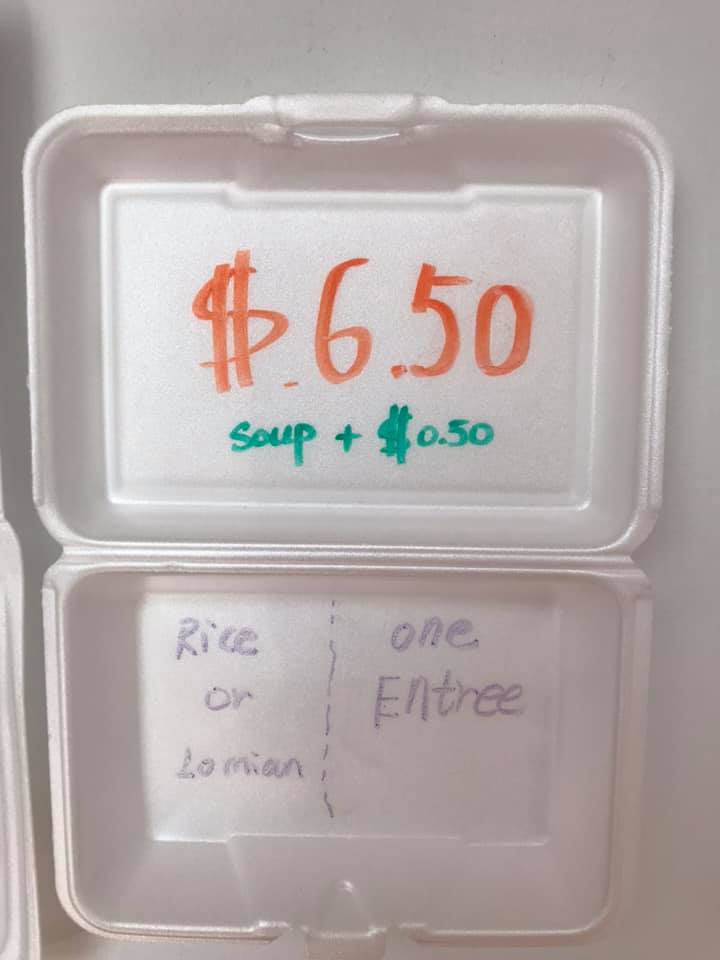 $.6.50
soup + $0.50
Rice
or
Lomian
one
Entree